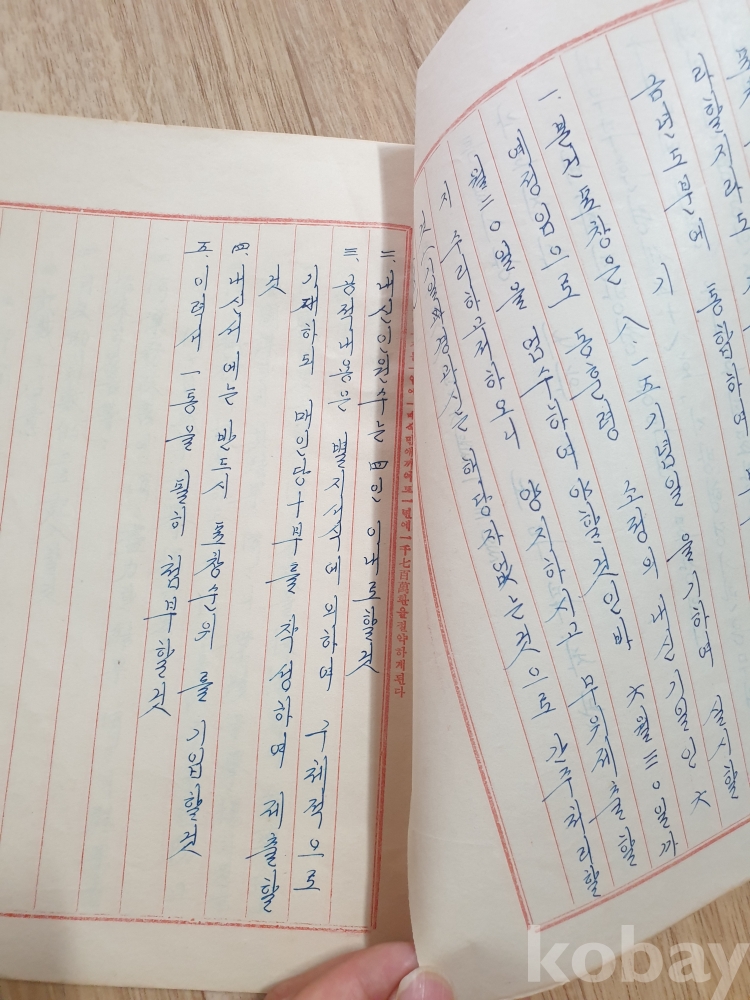 라할지라도
금년도분에 통합하여
기
一. 본건 표창은 八.一五 기념일을 기하여 실시할
예정임으로 동훈령 소정의 내신기일인 六
월三0일을 엄수하여야할것인바 六월三0일까
지 수리하고저하오니 양지하시고 무위제출할
것 (기일와경과시는 해당자없는것으로 간주처리할
一千七百萬환을절약하게된다
二. 내신인원수는 四인 이내로할것
三. 공적내용은 별지서식에 의하여 구체적으로
기재하되 매인당 부를 작성하여 제출할
것
四. 내신서에는 반드시 표창순위를 기입할것
五. 이력서 一통을 필히 첨부할것
kobay